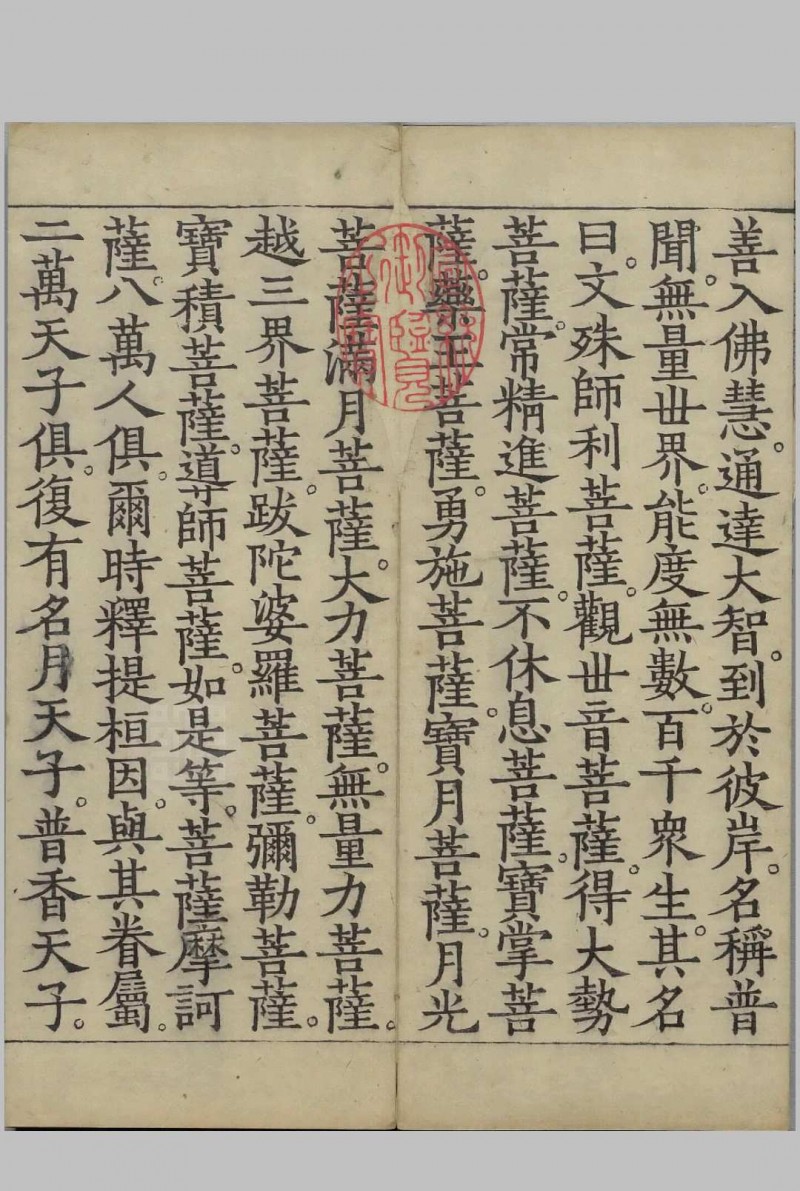 善入佛慧。通達大智。到於彼岸。名稱普
聞。無量世界。能度無數。百千衆生。其名
曰。文殊師利菩薩。觀世音菩薩。得大勢
菩薩。常精進菩薩。不休息菩薩。寶掌菩
薩。藥王菩薩。勇施菩薩。寶月菩薩。月光
菩薩。滿月菩薩。大力菩薩。無量力菩薩。
越三界菩薩。跋陀婆羅菩薩。彌勒菩薩。
寶積菩薩。導師菩薩。如是等。菩薩摩訶
薩。八萬人俱。爾時釋提桓因。與其眷屬。
二萬天子俱。復有名月天子。普香天子。